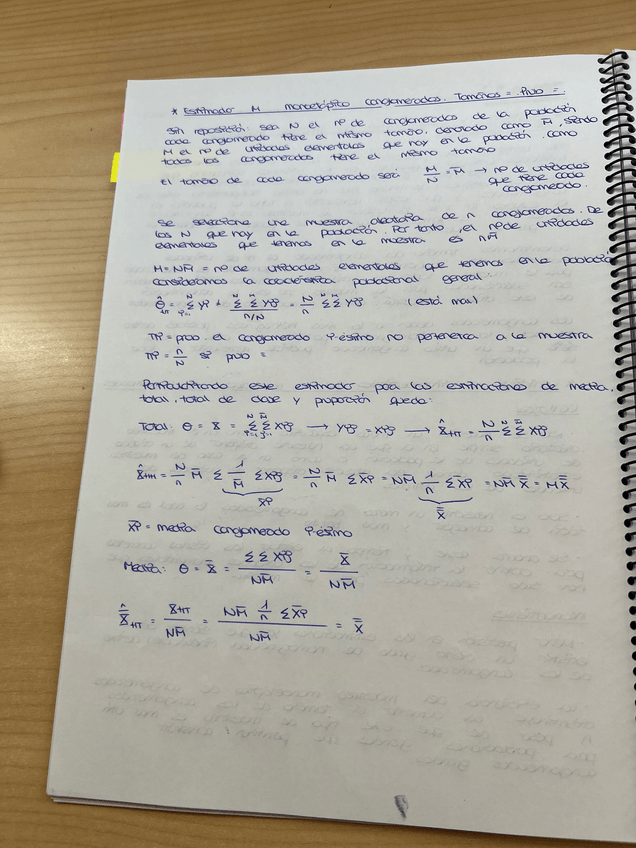 * Estimador M monoetápico conglomerados. Tamaños = . Prob =
Sin reposición: sea N el nº de conglomerados de la población
cada conglomerado tiene el mismo tamaño, denotado como M̄, siendo
M el nº de unidades elementales que hay en la población, como
todos los conglomerados tiene el mismo tamaño
El tamaño de cada conglomerado será: M/N = M̄ → nº de unidades
que tiene cada
conglomerado.
Se selecciona una muestra aleatoria de n conglomerados. De
los N que hay en la población. Por tanto, el nº de unidades
elementales que tenemos en la muestra es nM̄
M = NM̄ = nº de unidades elementales que tenemos en la población
consideramos la característica poblacional general.
(está mal)
Πi = prob. el conglomerado i-ésimo no pertenezca a la muestra
Πi = n/N si prob =
Particularizando este estimador para las estimaciones de media,
total, total de clase y proporción queda:
Total: θ = X = Σ(i=1, N) Σ(j=1, M̄) Xij → Yij = Xij → X̂HT = N/n Σ(n) Σ(M̄) Xij
X̂HH = N/n M̄ Σ 1/M̄ Σ Xij = N/n M̄ Σ X̄i = NM̄ 1/n Σ X̄i = NM̄ X̿ = M X̿
X̄i X̿
X̄i = media conglomerado i-ésimo
Media: θ = X̄ = Σ Σ Xij / NM̄ = X̄ / NM̄
X̄̂HT = XHT / NM̄ = NM̄ 1/n Σ X̄i / NM̄ = X̿